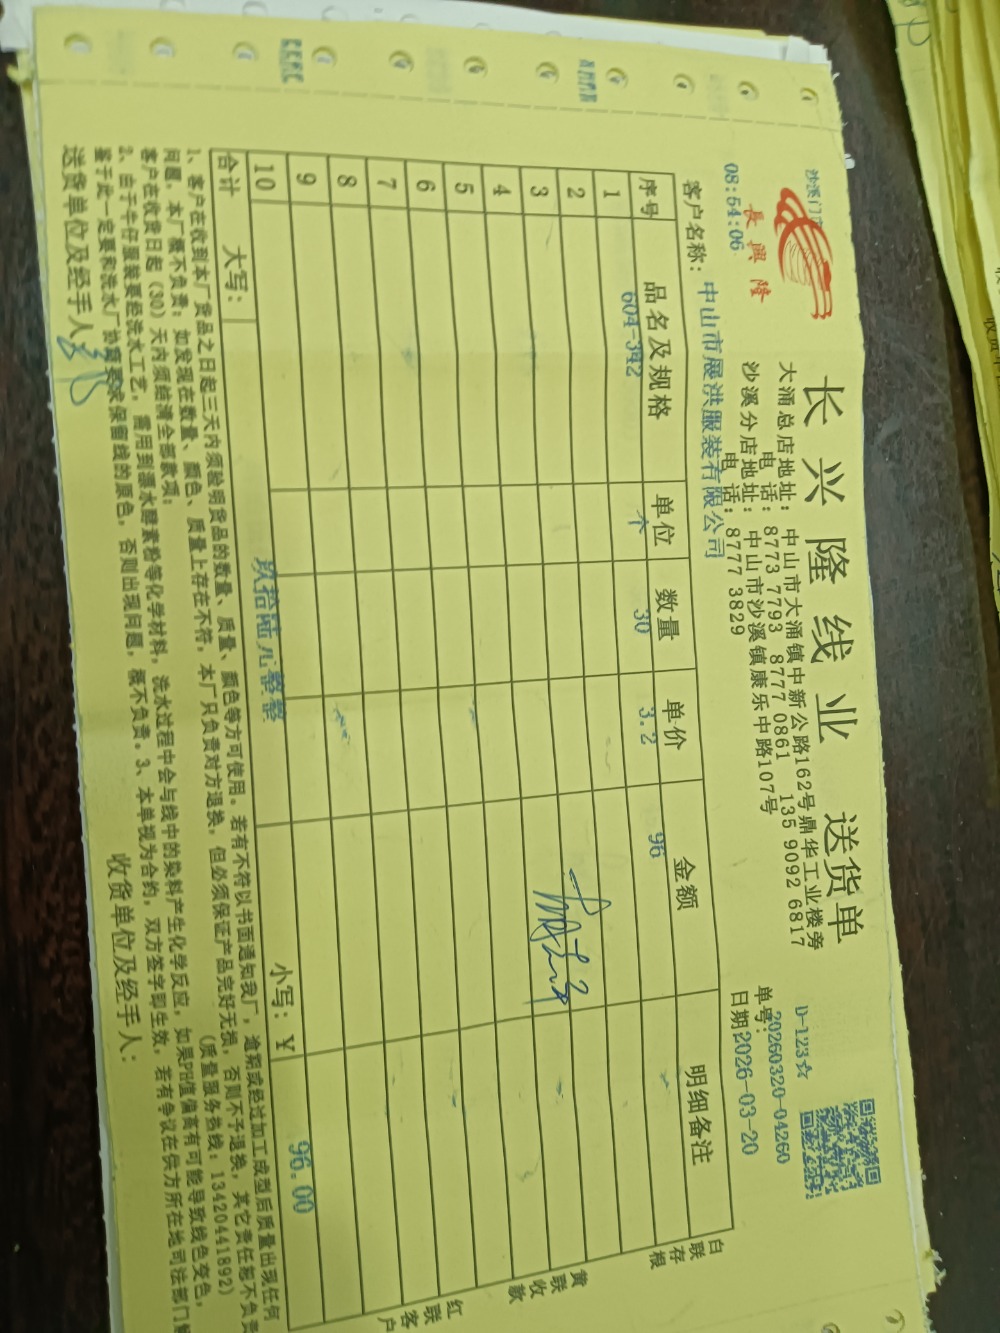 沙溪门市
長興隆
08:54:06
长兴隆线业 送货单
D-123☆
大涌总店地址: 中山市大涌镇中新公路162号鼎华工业楼旁
电话: 8773 7793 8777 0861 135 9092 6817
沙溪分店地址: 中山市沙溪镇康乐中路107号
电话: 8777 3829
单号: 20260320-04260
日期: 2026-03-20
客户名称: 中山市晟洪服装有限公司
序号 品名及规格 单位 数量 单价 金额 明细备注
1 604-342 个 30 3.2 96
2
3
4
5
6
7
8
9
10
合计 大写: 玖拾陆元整整 小写: ¥ 96.00
白联存根
黄联收款
红联客户
1、客户在收到本厂货品之日起三天内须验明货品的数量、质量、颜色等方可使用。若有不符以书面通知我厂,逾期或经过加工成型后质量出现任何
问题,本厂概不负责;如发现在数量、颜色、质量上存在不符,本厂只负责对方退换,但必须保证产品完好无损,否则不予退换,其它责任恕不负责
客户在收货日起(30)天内须结清全部款项; (质量服务热线:13420441892)
2、由于牛仔服装要经洗水工艺,需用到漂水酵素粉等化学材料,洗水过程中会与线中的染料产生化学反应,如果PH值偏高有可能导致线色变色,
鉴于此一定要和洗水厂协商要求保留线的原色,否则出现问题,概不负责。3、本单视为合约,双方签字即生效,若有争议在供方所在地司法部门解
送货单位及经手人: 收货单位及经手人: